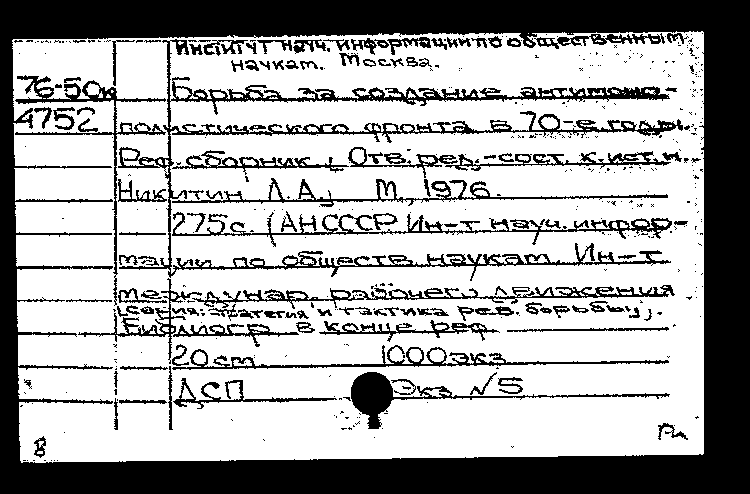 Институт науч. информации по общественным
наукам. Москва.
76-50к Борьба за создание антимоно-
4752 полистического фронта в 70-е годы.
Реф. сборник, Отв. ред.-сост. к.ист.н.
Никитин Л.А., М., 1976.
275с. (АН СССР Ин-т науч. инфор-
мации по обществ. наукам. Ин-т
междунар. рабочего движения
Серия: Стратегия и тактика рев. борьбы).
Библиогр. в конце реф.
20см. 1000экз
ДСП Экз. №5
В